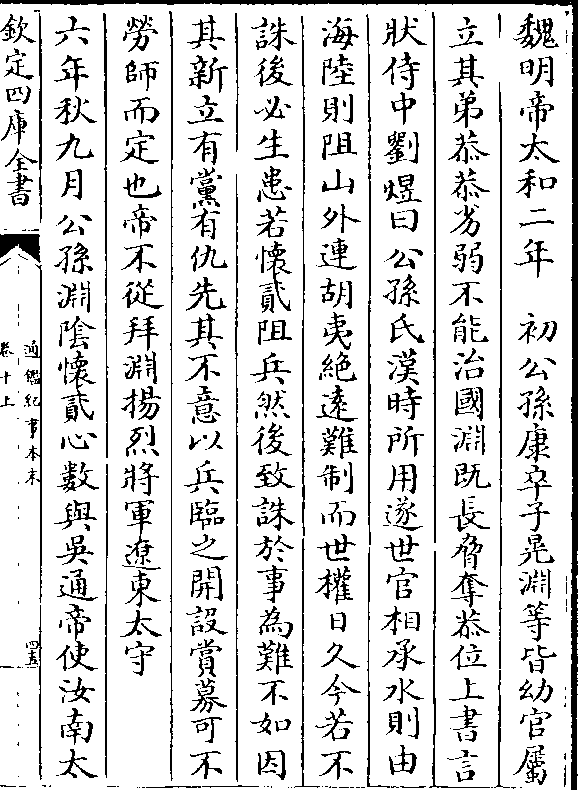 魏明帝太和二年　初公孫康卒子晃淵等皆幼官屬
立其弟恭恭劣弱不能治國淵既長脅奪恭位上書言
狀侍中劉煜曰公孫氏漢時所用遂世官相承水則由
海陸則阻山外連胡夷絶遠難制而世權日久今若不
誅後必生患若懷貳阻兵然後致誅於事為難不如因
其新立有黨有仇先其不意以兵臨之開設賞募可不
勞師而定也帝不從拜淵揚烈將軍遼東太守
六年秋九月公孫淵隂懷貳心數與吳通帝使汝南太
欽定四庫全書
通鑑紀事本末
卷十上
四五